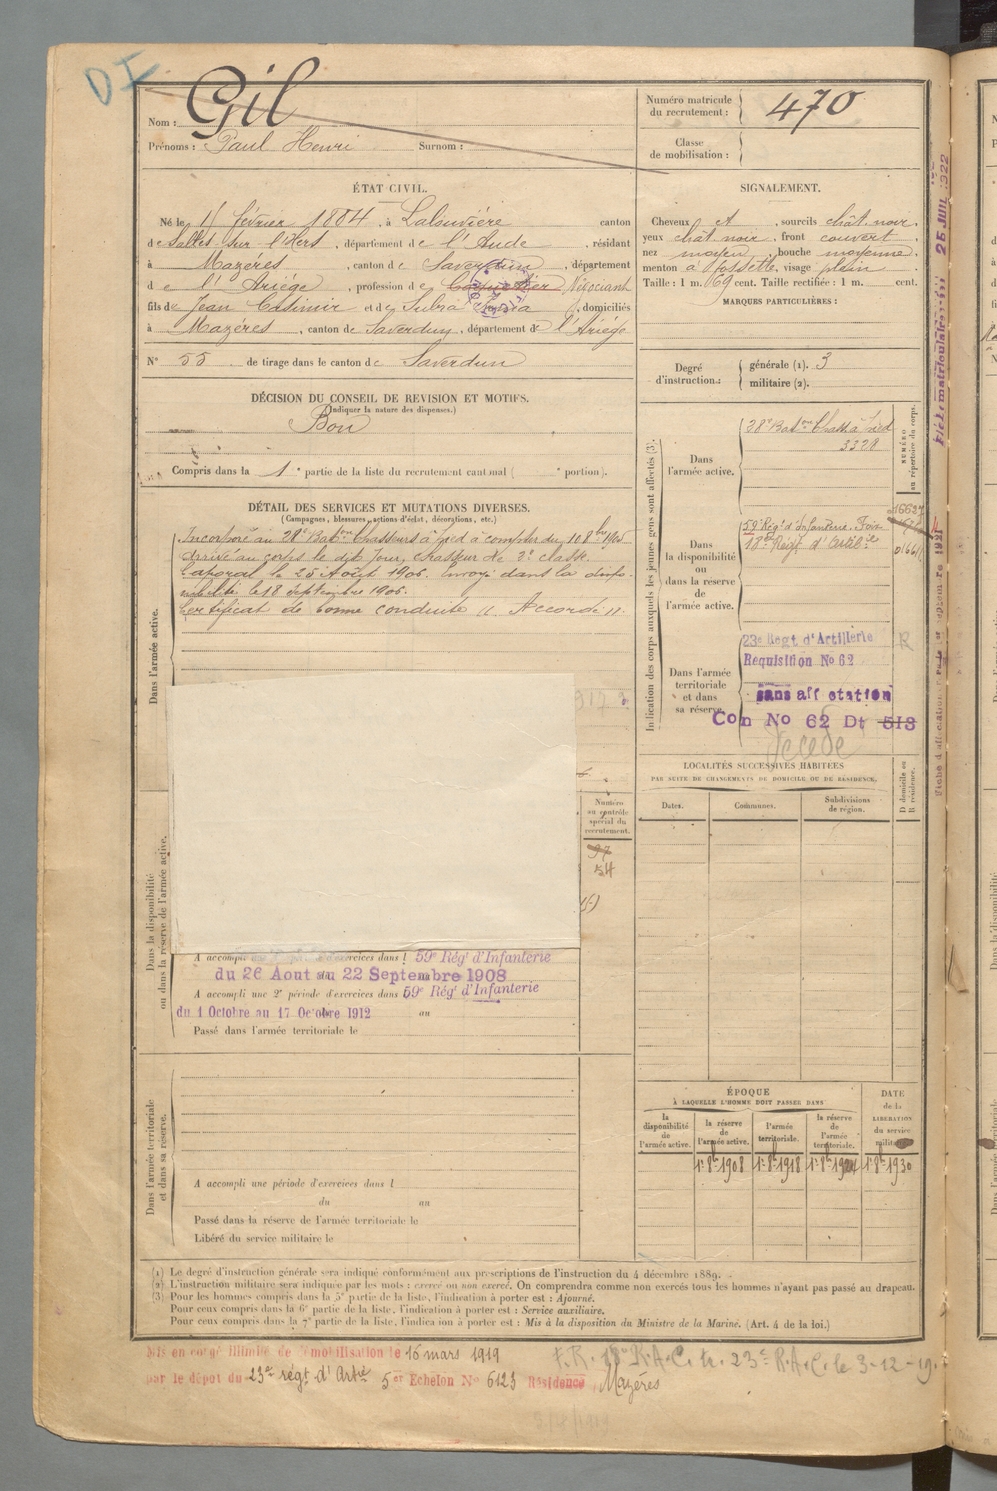 DI
Nom : Gil
Prénoms : Paul Henri Surnom :
Numéro matricule
du recrutement : 470
Classe
de mobilisation :
ÉTAT CIVIL.
Né le février 1884, à Lalouvière canton
de Salles-sur-l'Hers, département de l'Aude, résidant
à Mazéres, canton de Saverdun, département
de l'Ariége, profession de Négociant
fils de Jean Casimir et de domiciliés
à Mazéres, canton de Saverdun, département de l'Ariége
N° 55 de tirage dans le canton de Saverdun
DÉCISION DU CONSEIL DE REVISION ET MOTIFS.
(Indiquer la nature des dispenses.)
Bon
Compris dans la 1e partie de la liste du recrutement cantonal ( e portion).
DÉTAIL DES SERVICES ET MUTATIONS DIVERSES.
(Campagnes, blessures, actions d'éclat, décorations, etc.)
Dans l'armée active.
Incorporé au 28e Baton Chasseurs à pied à compter du 8bre 1905
Arrivé au corps le dit jour, chasseur de 2e classe.
Caporal le 25 Août 1906. Envoyé dans la dispo-
nibilité le 18 septembre 1906.
Certificat de bonne conduite " Accordé ".
917
Numéro
au contrôle
spécial du
recrutement.
97
54
Dans la disponibilité
ou dans la réserve de l'armée active.
A accompli d'exercices dans l 59e Régt d'Infanterie
du 26 Aout au 22 Septembre 1908
A accompli une 2e période d'exercices dans 59e Régt d'Infanterie
du 1 Octobre au 17 Octobre 1912 au
Passé dans l'armée territoriale le
Dans l'armée territoriale
et dans sa réserve.
A accompli une période d'exercices dans l
du au
Passé dans la réserve de l'armée territoriale le
Libéré du service militaire le
SIGNALEMENT.
Cheveux et, sourcils chât. noir,
yeux chât. noir, front couvert,
nez moyen, bouche moyenne,
menton à fossette, visage plein.
Taille : 1 m. 69 cent. Taille rectifiée : 1 m. cent.
MARQUES PARTICULIÈRES :
Degré
d'instruction :
générale (1). 3
militaire (2).
Indication des corps auxquels les jeunes gens sont affectés (3).
NUMÉRO
au répertoire du corps.
Dans
l'armée active.
28e Baton Chass. à pied
3328
Dans
la disponibilité
ou
dans la réserve
de
l'armée active.
59e Régt d'Infanterie. Foix
18e Régt d'Artillie
Dans l'armée
territoriale
et dans
sa réserve
23e Régt d'Artillerie
Requisition No 62
R
sans affectation
Con No 62 Dt 513
Décédé
LOCALITÉS SUCCESSIVES HABITÉES
PAR SUITE DE CHANGEMENTS DE DOMICILE OU DE RÉSIDENCE.
Dates.
Communes.
Subdivisions
de région.
D domicile ou
R résidence.
ÉPOQUE
À LAQUELLE L'HOMME DOIT PASSER DANS
la
disponibilité
de
l'armée active.
la réserve
de
l'armée active.
l'armée
territoriale.
la réserve
de
l'armée
territoriale.
DATE
de la
LIBÉRATION
du service
militaire
1r 8bre 1908
1r 8bre 1918
1r 8bre 1924
1r 8bre 1930
(1) Le degré d'instruction générale sera indiqué conformément aux prescriptions de l'instruction du 4 décembre 1889.
(2) L'instruction militaire sera indiquée par les mots : exercé ou non exercé. On comprendra comme non exercés tous les hommes n'ayant pas passé au drapeau.
(3) Pour les hommes compris dans la 5e partie de la liste, l'indication à porter est : Ajourné.
Pour ceux compris dans la 6e partie de la liste, l'indication à porter est : Service auxiliaire.
Pour ceux compris dans la 7e partie de la liste, l'indication à porter est : Mis à la disposition du Ministre de la Marine. (Art. 4 de la loi.)
Mis en congé illimité de démobilisation le 16 mars 1919
par le dépot du 23e régt d'Artie 5er Echelon No 6123 Résidence Mazéres
F.R. 18e R.A.C. tr. 23e R.A.C. le 3-12-19.